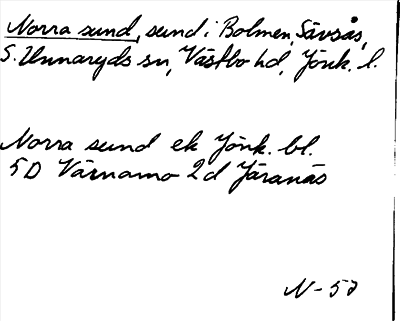 Norra sund, sund i Bolmen, Sävsås,
S. Unnaryds sn, Västbo hd, Jönk. l.
Norra sund ek Jönk. bl.
5D Värnamo 2d Järanäs
N-57